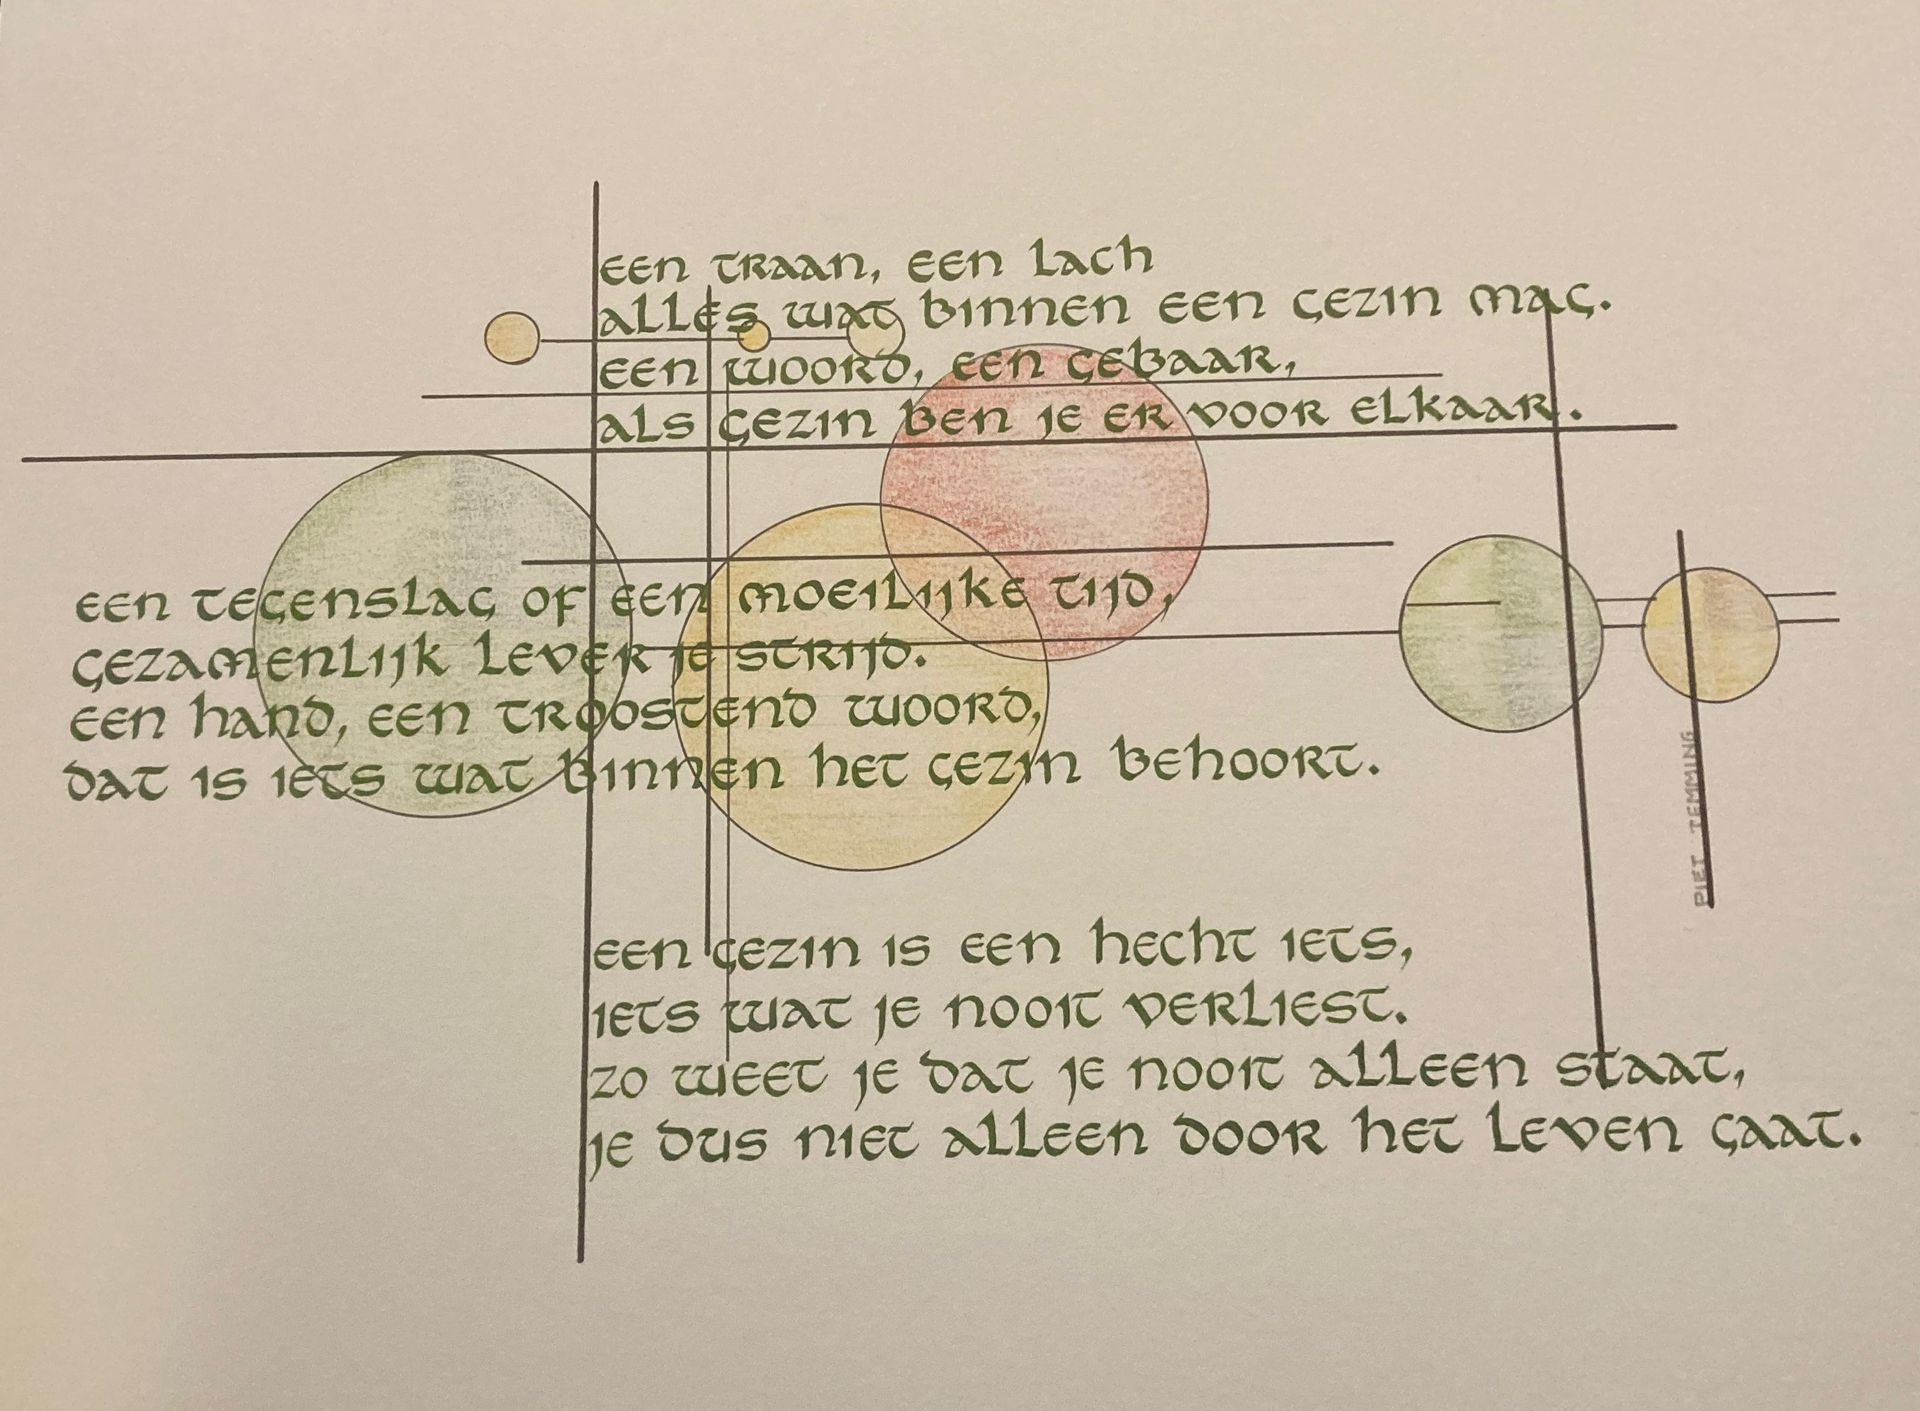 een traan, een lach
alles wat binnen een gezin mag.
een woord, een gebaar,
als gezin ben je er voor elkaar.
een tegenslag of een moeilijke tijd,
gezamenlijk lever je strijd.
een hand, een troostend woord,
dat is iets wat binnen het gezin behoort.
een gezin is een hecht iets,
iets wat je nooit verliest.
zo weet je dat je nooit alleen staat,
je dus niet alleen door het leven gaat.
PIET TEMMING